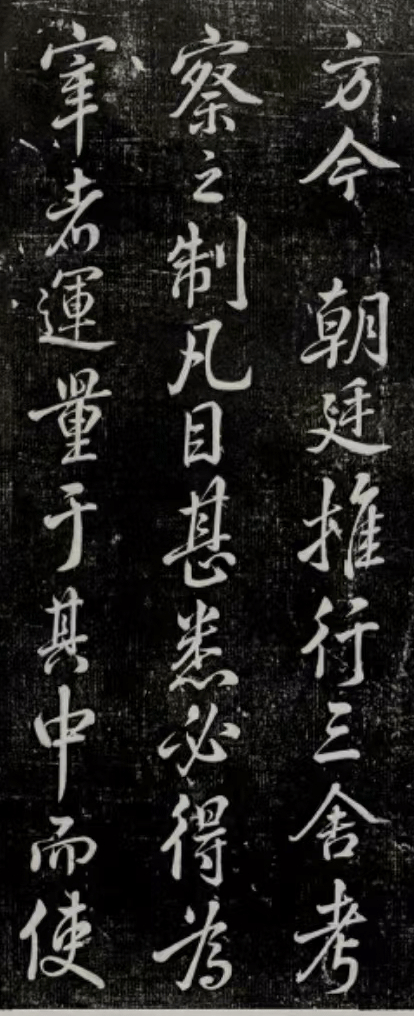 方今 朝廷推行三舍考
察之制凡目甚悉必得為
宰者運量于其中而使